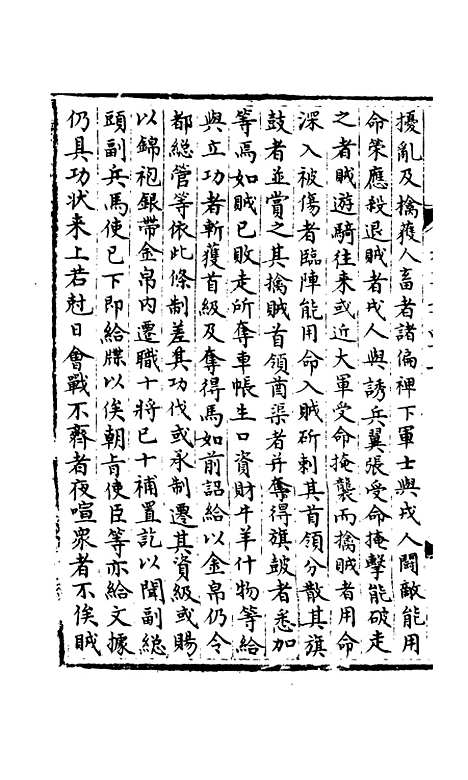 擾亂及擒獲人畜者諸偏裨下軍士與戎人鬬敵能用
命策應殺退賊者戎人與誘兵翼張受命掩擊能破走
之者賊遊騎往来或近大軍受命掩襲而擒賊者用命
深入被傷者臨陣能用命入賊斫刺其首領分散其旗
鼓者並賞之其擒賊首領酋渠者并奪得旗鼓者悉加
等焉如賊已敗走所奪車帳生口資財牛羊什物等給
與立功者斬獲首級及奪得馬如前詔給以金帛仍令
都緫管等依此條制差其功伐或承制遷其資級或賜
以錦袍銀帶金帛内遷職十將已十補置訖以聞副緫
頭副兵馬使已下即給牒以俟朝肯使臣等亦給文據
仍具功状来上若尅日會戰不齊者夜喧衆者不俟賊